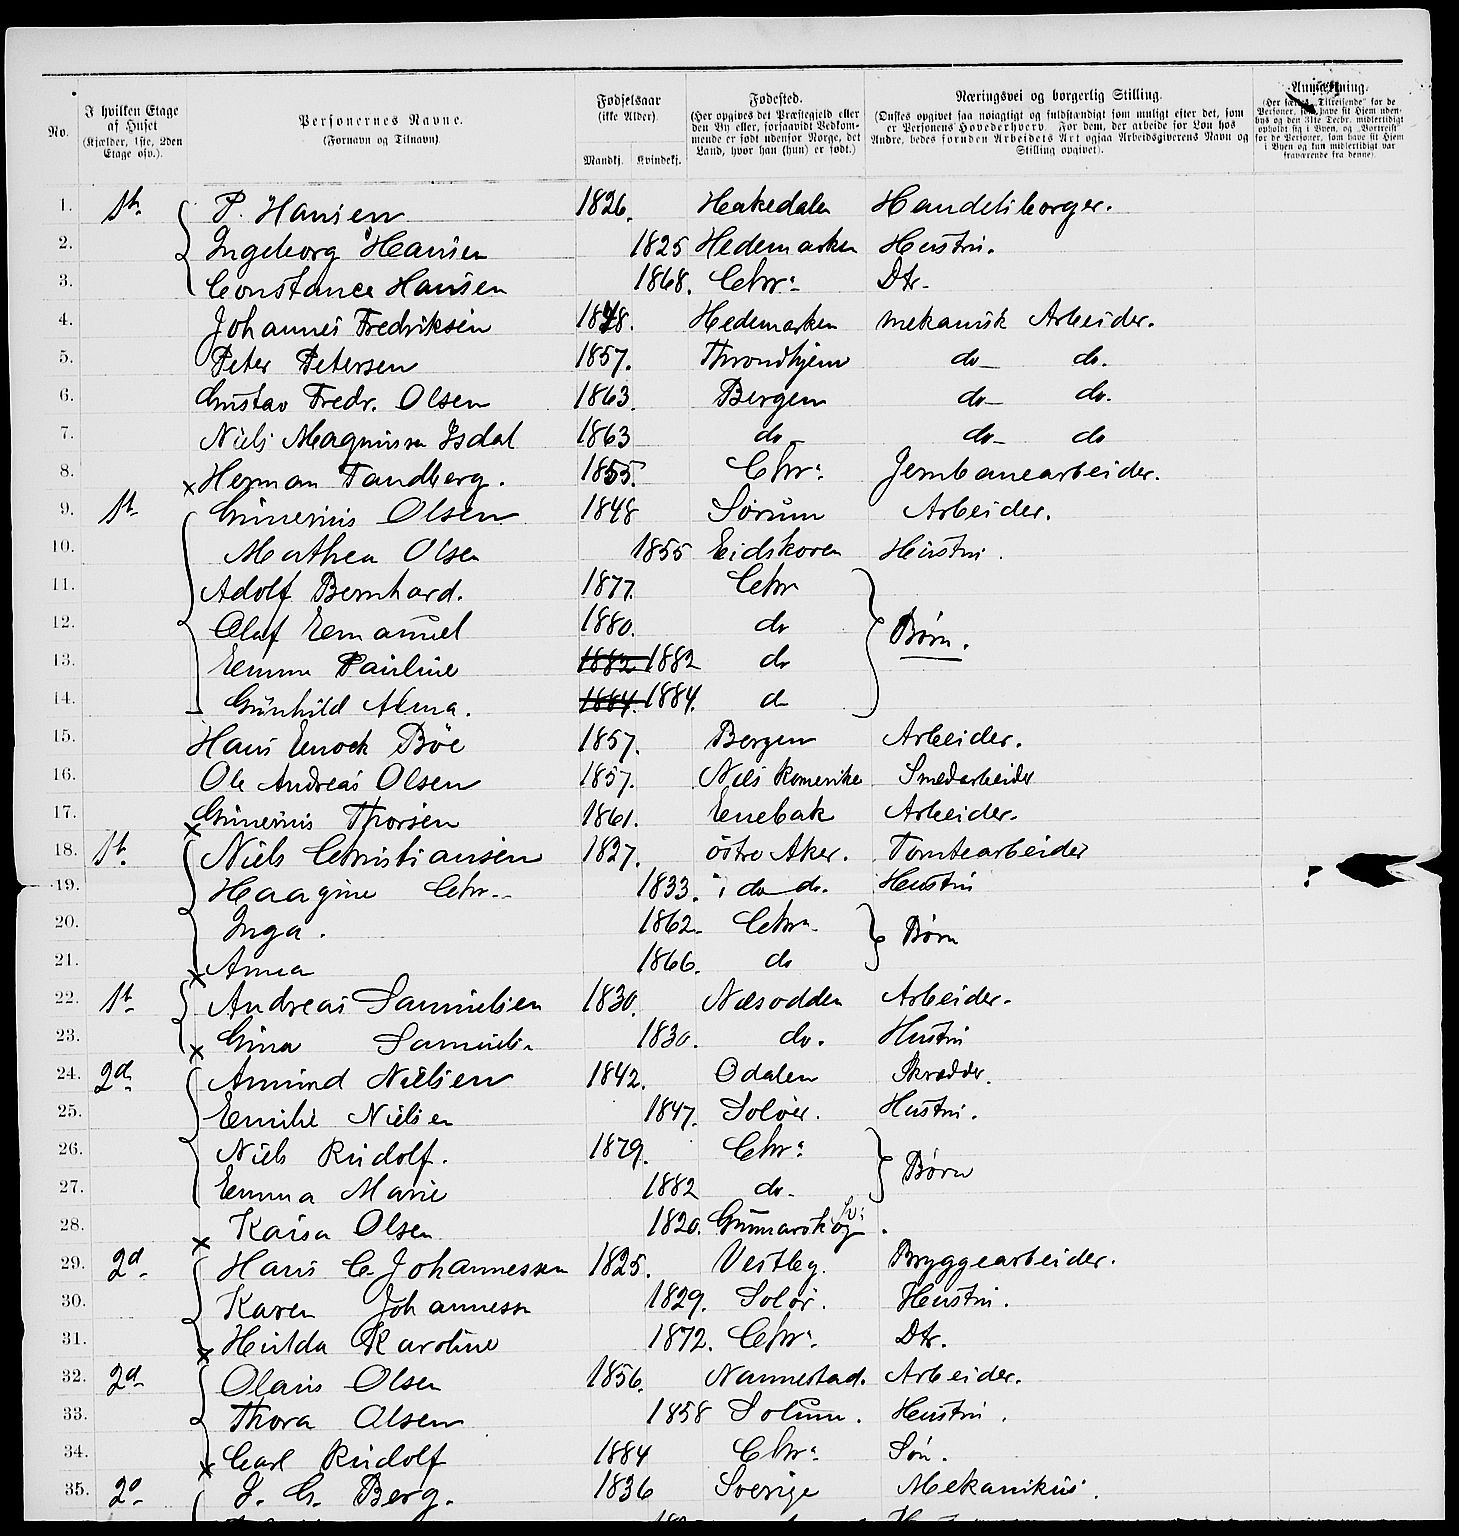 No. I hvilken Etage af Huset (Kjælder, 1ste, 2den Etage osv.). Personernes Navne. (Fornavn og Tilnavn) Fødselsaar (ikke Alder). Mandkj. Kvindekj. Fødested. (Her opgives det Præstegjeld eller den By eller, forsaavidt Vedkommende er født udenfor Norge, det Land, hvor han (hun) er født.) Næringsvei og borgerlig Stilling. (Dustes opgivet saa nøiagtigt og fuldstændigt som muligt efter det, som er Personens Hovederhverv. For dem, der arbeide for Løn hos Andre, bedes foruden Arbeidets Art ogsaa Arbeidsgiverens Navn og Stilling opgivet). Anmærkning.
1. 1st P. Hansen 1826. Hakedalen Handelsborger.
2. Ingeborg Hansen 1825 Hedemarken Hustru.
3. Constance Hansen 1868. Chra Dtr.
4. Johannes Fredriksen 1848. Hedemarken mekanisk Arbeider.
5. Peter Petersen 1857. Throndhjem do do.
6. Gustav Fredr. Olsen 1863. Bergen do do.
7. Niels Magnussen Isdal 1863 do do do
8. x Herman Tandberg. 1855. Chra Jernbanearbeider.
9. 1st Gunerius Olsen 1848 Sørum Arbeider.
10. Mathea Olsen 1855 Eidskoven Hustru.
11. Adolf Bernhard. 1877. Chra
12. Olaf Emanuel 1880. do Børn.
13. Emma Pauline 1882 1882 do
14. Gunhild Alma. 1884. 1884. do
15. Hans Enock Bøe 1857. Bergen Arbeider.
16. Ole Andreas Olsen 1857. Næs Romerike Smedarbeider
17. x Gunerius Thorsen 1861. Enebak Arbeider.
18. 1st Niels Christiansen 1827. östre Aker. Tomtearbeider
19. Haagine Chr. 1833. i do do. Hustru
20. Inga. 1862. Chra Børn
21. x Anna 1866. do
22. 1st Andreas Samuelsen 1830. Næsodden Arbeider.
23. x Gina Samuelsen 1830. do. Hustru
24. 2d Amund Nielsen 1842. Odalen Skrædder.
25. Emilie Nielsen 1847. Soløer. Hustru.
26. Niels Rudolf. 1879. Chra Børn
27. Emma Marie 1882 do.
28. x Kaisa Olsen 1820. Gunnarskog Sv.
29. 2d Hans C. Johannessen 1825. Vestby. Bryggearbeider.
30. Karen Johannessen 1829. Solør. Hustru.
31. x Hulda Karoline 1872. Chra Dtr.
32. 2d Olaus Olsen 1856. Nannestad. Arbeider.
33. Thora Olsen 1858 Solum. Hustru.
34. x Carl Rudolf 1884 Chra Søn.
35. 2d Berg. 1836 Sverige Mekanikus.